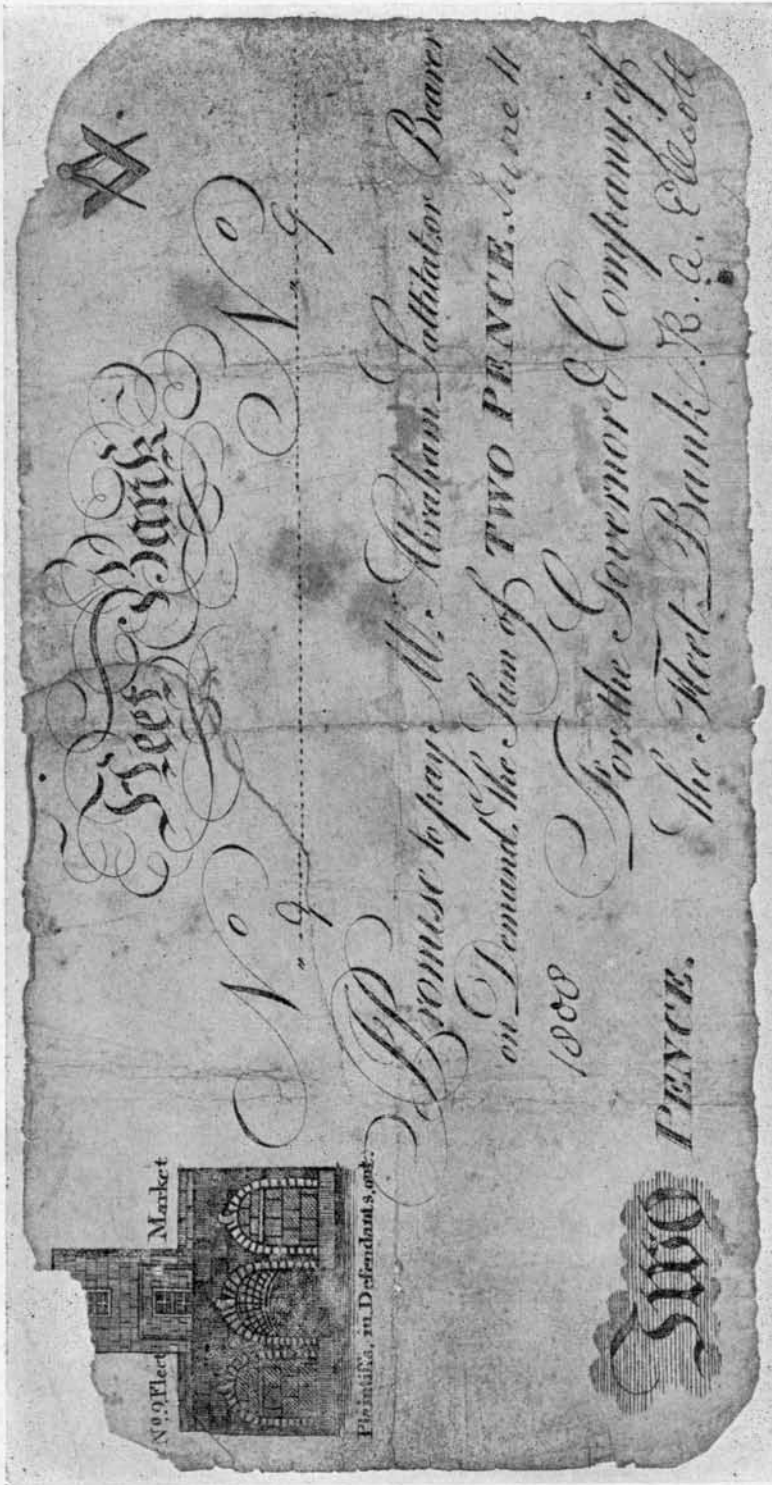 Fleet Bank
No. 9 Fleet Market
Plaintiffs, in Defendants, out.
No. 9 No. 9
I Promise to pay Mr. Abraham Lattitat or Bearer
on Demand, the Sum of TWO PENCE. June 11
1808 For the Governor & Company of
Two PENCE. the Fleet Bank. R. A. Ellcott